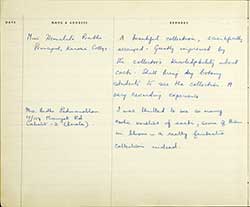 DATE NAME & ADDRESS REMARKS
Miss Hemalata Prabhu
Principal, Kanara College.
A beautiful collection, scientifically
arranged. Greatly impressed by
the collectors knowledgeability about
cacti. Shall bring my botany
students to see the collection. A
very rewarding experience
Mrs. Padmanabhan
Rd
Calicut-2 (Kerala)
I was thrilled to see so many
varieties of cacti, some of them
in bloom — a really fantastic
collection indeed.